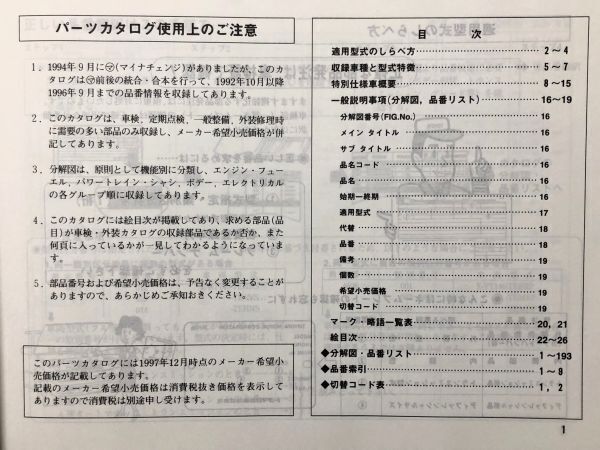 パーツカタログ使用上のご注意
1. 1994年9月に㋮(マイナチェンジ)がありましたが、このカ
タログは㋮前後の統合・合本を行って、1992年10月以降
1996年9月までの品番情報を収録してあります。
2. このカタログは、車検、定期点検、一般整備、外装修理時
に需要の多い部品のみ収録し、メーカー希望小売価格が併
記してあります。
3. 分解図は、原則として機能別に分類し、エンジン・フュー
エル、パワートレイン・シャシ、ボデー、エレクトリカル
の各グループ順に収録してあります。
4. このカタログには絵目次が掲載してあり、求める部品(品
目)が車検・外装カタログの収録部品であるか否か、また
何頁に入っているかが一見してわかるようになっていま
す。
5. 部品番号および希望小売価格は、予告なく変更することが
ありますので、あらかじめご承知おきください。
このパーツカタログには1997年12月時点のメーカー希望小
売価格が記載してあります。
記載のメーカー希望小売価格は消費税抜き価格を表示して
ありますので消費税は別途申し受けます。
目 次
適用型式のしらべ方 2～4
収録車種と型式特徴 5～7
特別仕様車概要 8～15
一般説明事項(分解図，品番リスト) 16～19
分解図番号(FIG.No.) 16
メイン タイトル 16
サブ タイトル 16
品名コード 16
品名 16
始期―終期 16
適用型式 17
代替 18
品番 18
備考 19
個数 19
希望小売価格 19
切替コード 19
マーク・略語一覧表 20, 21
絵目次 22～26
◆分解図・品番リスト 1～193
◆品番索引 1～8
◆切替コード表 1, 2
1